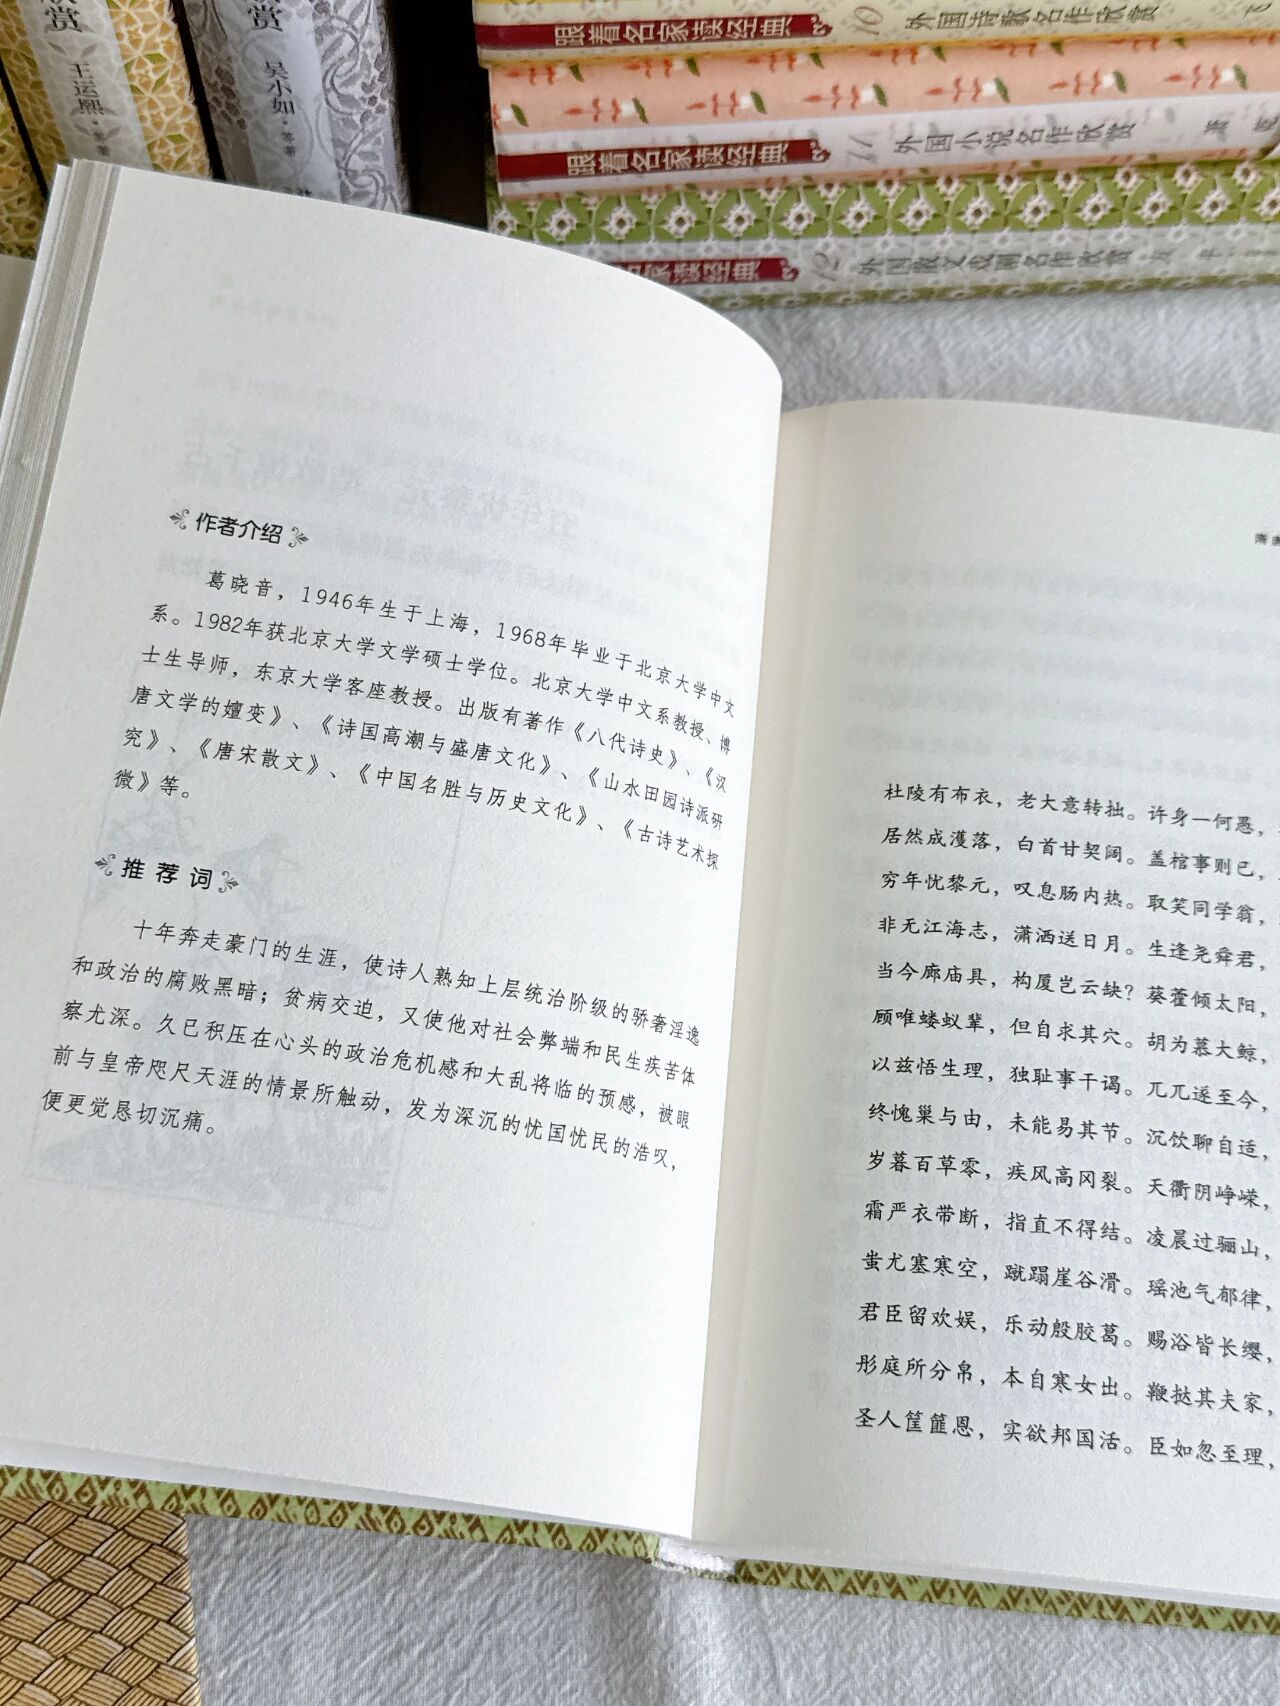 欣赏
王运熙
赏
吴小如
跟着名家读经典
10
外国诗歌名作欣赏
跟着名家读经典
11
外国小说名作欣赏
名家读经典
12
外国散文戏剧名作欣赏
作者介绍
葛晓音，1946年生于上海，1968年毕业于北京大学中文
系。1982年获北京大学文学硕士学位。北京大学中文系教授、博
士生导师，东京大学客座教授。出版有著作《八代诗史》、《汉
唐文学的嬗变》、《诗国高潮与盛唐文化》、《山水田园诗派研
究》、《唐宋散文》、《中国名胜与历史文化》、《古诗艺术探
微》等。
推荐词
十年奔走豪门的生涯，使诗人熟知上层统治阶级的骄奢淫逸
和政治的腐败黑暗；贫病交迫，又使他对社会弊端和民生疾苦体
察尤深。久已积压在心头的政治危机感和大乱将临的预感，被眼
前与皇帝咫尺天涯的情景所触动，发为深沉的忧国忧民的浩叹，
便更觉恳切沉痛。
杜陵有布衣，老大意转拙。许身一何愚，
居然成濩落，白首甘契阔。盖棺事则已，
穷年忧黎元，叹息肠内热。取笑同学翁，
非无江海志，潇洒送日月。生逢尧舜君，
当今廊庙具，构厦岂云缺？葵藿倾太阳，
顾唯蝼蚁辈，但自求其穴。胡为慕大鲸，
以兹悟生理，独耻事干谒。兀兀遂至今，
终愧巢与由，未能易其节。沉饮聊自适，
岁暮百草零，疾风高冈裂。天衢阴峥嵘，
霜严衣带断，指直不得结。凌晨过骊山，
蚩尤塞寒空，蹴蹋崖谷滑。瑶池气郁律，
君臣留欢娱，乐动殷胶葛。赐浴皆长缨，
彤庭所分帛，本自寒女出。鞭挞其夫家，
圣人筐篚恩，实欲邦国活。臣如忽至理，